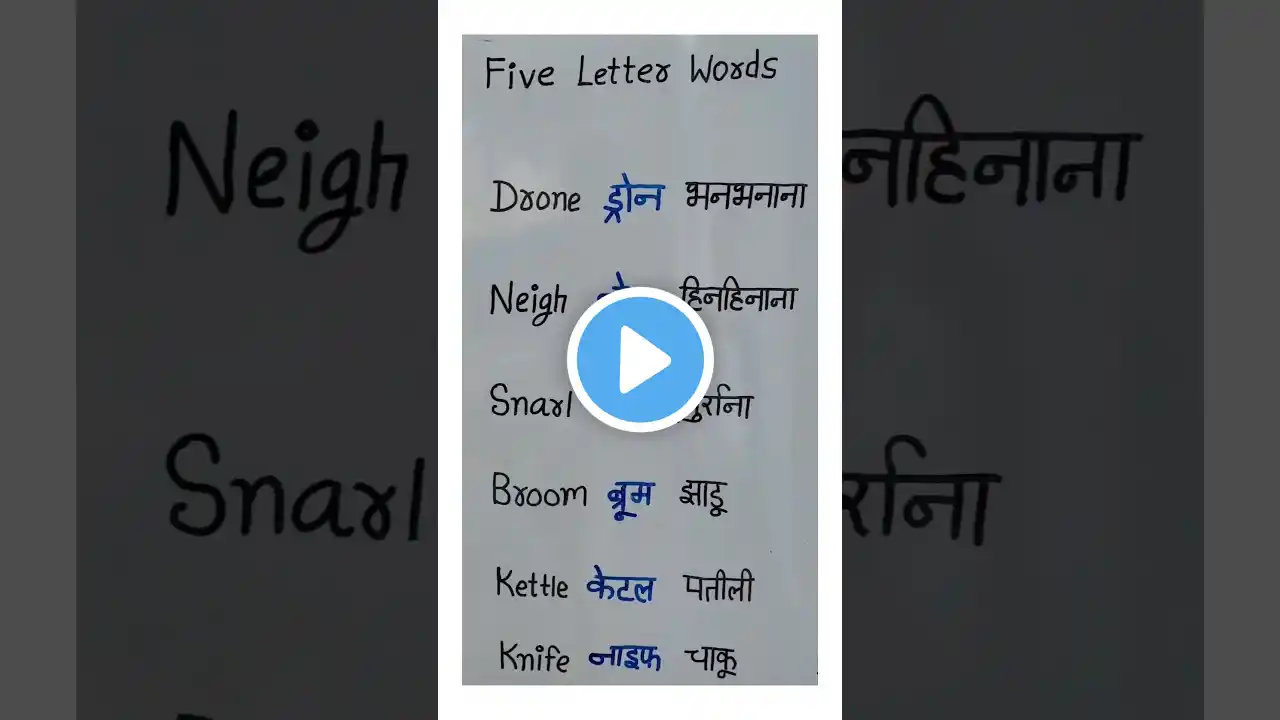 Five Letter Words
Drone ड्रोन भनभनाना
Neigh हिनहिनाना
Snarl
Broom ब्रूम झाडू
Kettle केटल पतीली
Knife नाइफ चाकू
Neigh
Snarl